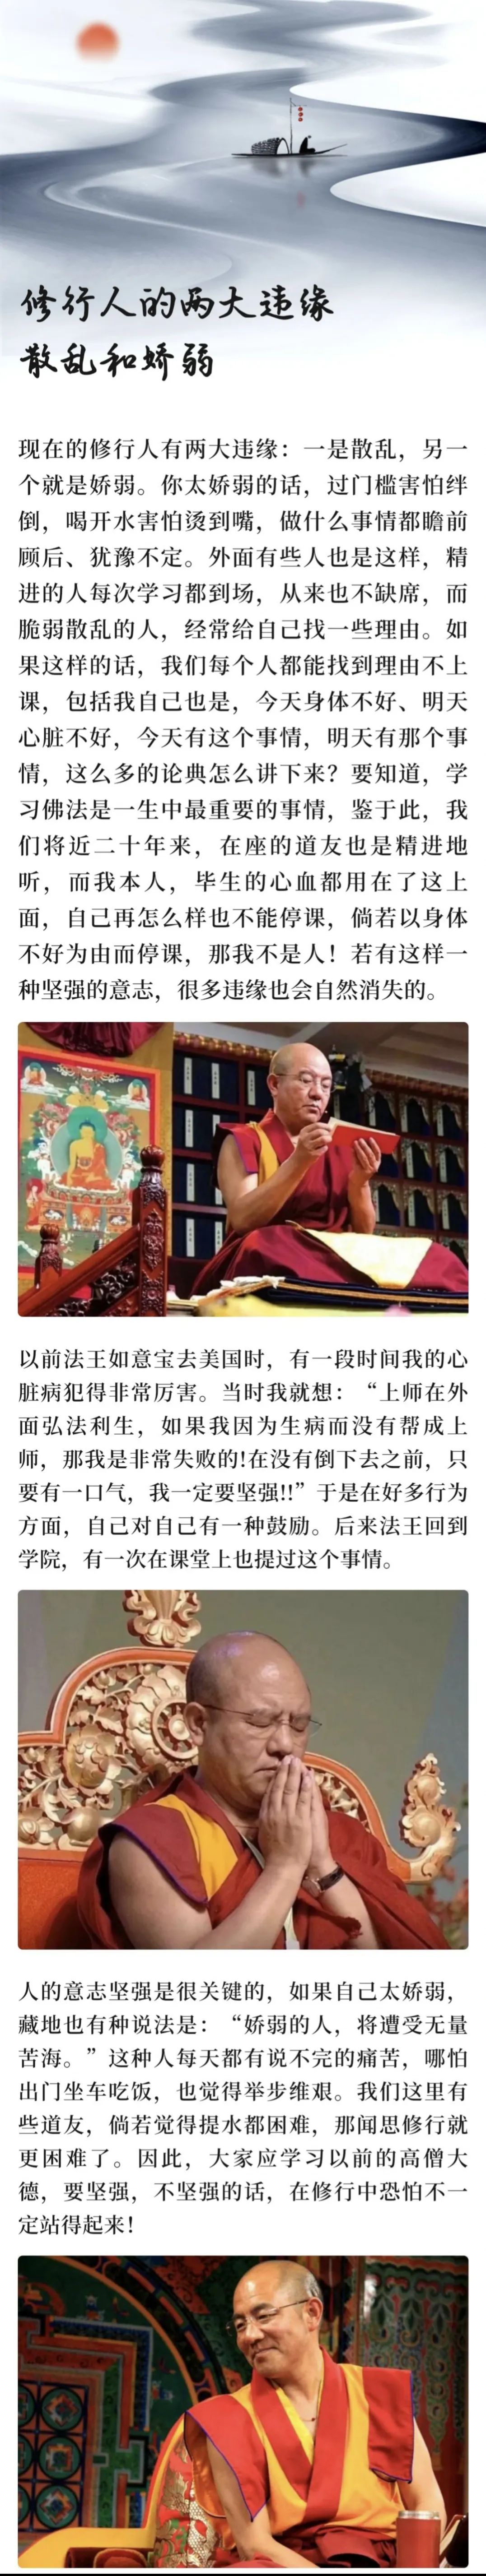 修行人的两大违缘
散乱和娇弱
现在的修行人有两大违缘：一是散乱，另一
个就是娇弱。你太娇弱的话，过门槛害怕绊
倒，喝开水害怕烫到嘴，做什么事情都瞻前
顾后、犹豫不定。外面有些人也是这样，精
进的人每次学习都到场，从来也不缺席，而
脆弱散乱的人，经常给自己找一些理由。如
果这样的话，我们每个人都能找到理由不上
课，包括我自己也是，今天身体不好、明天
心脏不好，今天有这个事情，明天有那个事
情，这么多的论典怎么讲下来？要知道，学
习佛法是一生中最重要的事情，鉴于此，我
们将近二十年来，在座的道友也是精进地
听，而我本人，毕生的心血都用在了这上
面，自己再怎么样也不能停课，倘若以身体
不好为由而停课，那我不是人！若有这样一
种坚强的意志，很多违缘也会自然消失的。
以前法王如意宝去美国时，有一段时间我的心
脏病犯得非常厉害。当时我就想：“上师在外
面弘法利生，如果我因为生病而没有帮成上
师，那我是非常失败的!在没有倒下去之前，只
要有一口气，我一定要坚强!!”于是在好多行为
方面，自己对自己有一种鼓励。后来法王回到
学院，有一次在课堂上也提过这个事情。
人的意志坚强是很关键的，如果自己太娇弱，
藏地也有种说法是：“娇弱的人，将遭受无量
苦海。”这种人每天都有说不完的痛苦，哪怕
出门坐车吃饭，也觉得举步维艰。我们这里有
些道友，倘若觉得提水都困难，那闻思修行就
更困难了。因此，大家应学习以前的高僧大
德，要坚强，不坚强的话，在修行中恐怕不一
定站得起来！